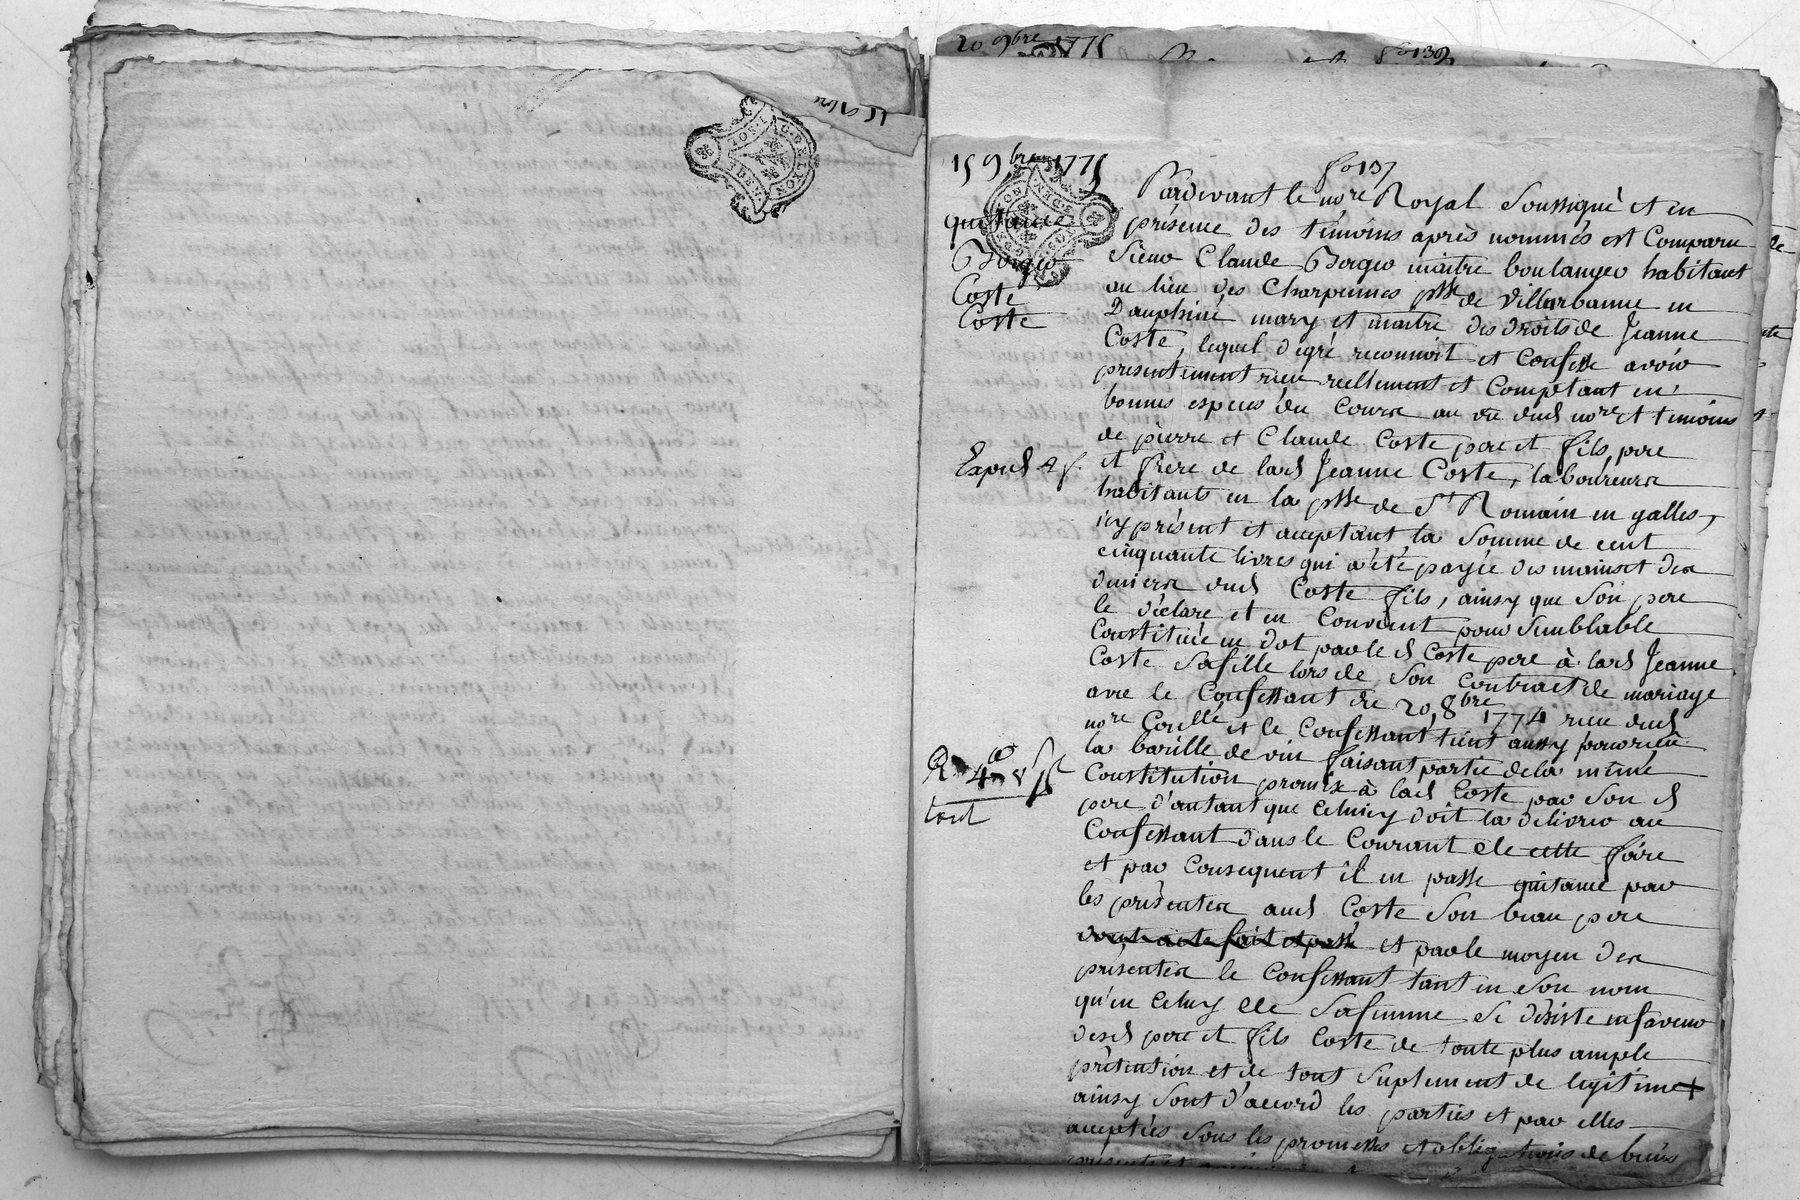 20 9bre 1775
fo 139
15 9bre 1775
fo 137
quittance
Borgeo
Coste
Coste
Expéd 2 f.
tout
Pardevant le nore Royal Soussigné et en
présence des témoins après nommés est Comparu
Sieur Claude Borgeo maitre boulanger habitant
au lieu des Charpennes psse de Villurbanne en
Dauphiné mary et maitre des droits de Jeanne
Coste, lequel dégré reconnoit et Confesse avoir
presentement reçu reellement et Comptant en
bonnes espèces du Cours au vu dud nore et témoins
de pierre et Claude Coste pere et fils, pere
et frère de lad Jeanne Coste, laboureurs
habitants en la psse de St Romain en galles,
icy présent et acceptant la Somme de cent
cinquante livres qui a été payée des mains et des
deniers dud Coste fils, ainsy que Son pere
le déclare et en Convient pour Semblable
Constituée en dot par led Coste pere à lad Jeanne
Coste Sa fille lors de Son Contract de mariage
avec le Confessant du 20 8bre 1774 reçu dud
nore et le Confessant tient aussy pour reçu
la barille de vin faisant partie de la même
Constitution promise à lad Coste par Son d
pere d'autant que Celuicy doit la delivrer au
Confessant dans le Courant de cette foire
et par Consequent il en passe quitance par
les présentes aud Coste Son beau pere
dont acte fait et passé et par le moyen des
présentes le Confessant tant en Son nom
qu'en Celuy de Sa femme Se désiste en faveur
desd pere et fils Coste de toute plus ample
prétention et de tout Suplement de legitime +
ainsy Sont d'accord les parties et par elles
acceptées Sous les promesses et obligations de biens